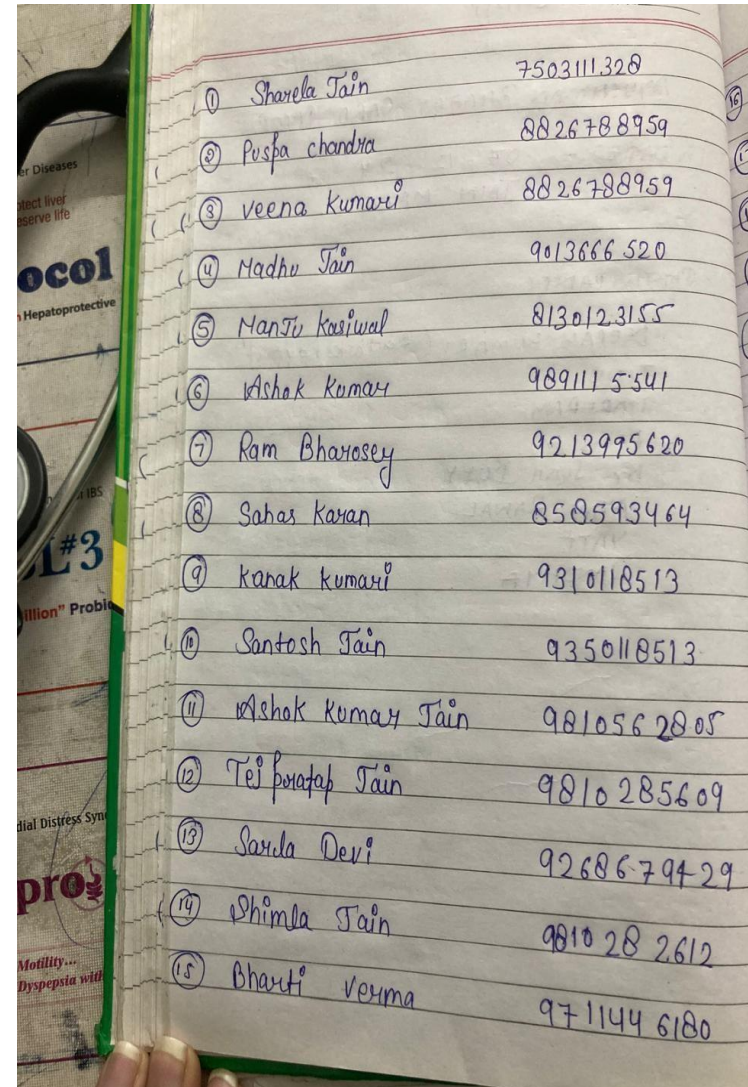 er Diseases
otect liver
eserve life
ocol
Hepatoprotective
IBS
L#3
illion" Probio
dial Distress Syn
pro
Motility...
Dyspepsia with
① Sharela Jain 7503111328
② Puspa chandra 8826788959
③ veena Kumari 8826788959
④ Madhu Jain 9013666520
⑤ Manju Kasiwal 8130123155
⑥ Ashok Kumar 9891115541
⑦ Ram Bharosey 9213995620
⑧ Sahas Karan 858593464
⑨ Kanak Kumari 9310118513
⑩ Santosh Jain 9350118513
⑪ Ashok Kumar Jain 9810562805
⑫ Tej pratap Jain 9810285609
⑬ Sarla Devi 9268679429
⑭ Shimla Jain 9810282612
⑮ Bharti Verma 9711446180
⑯